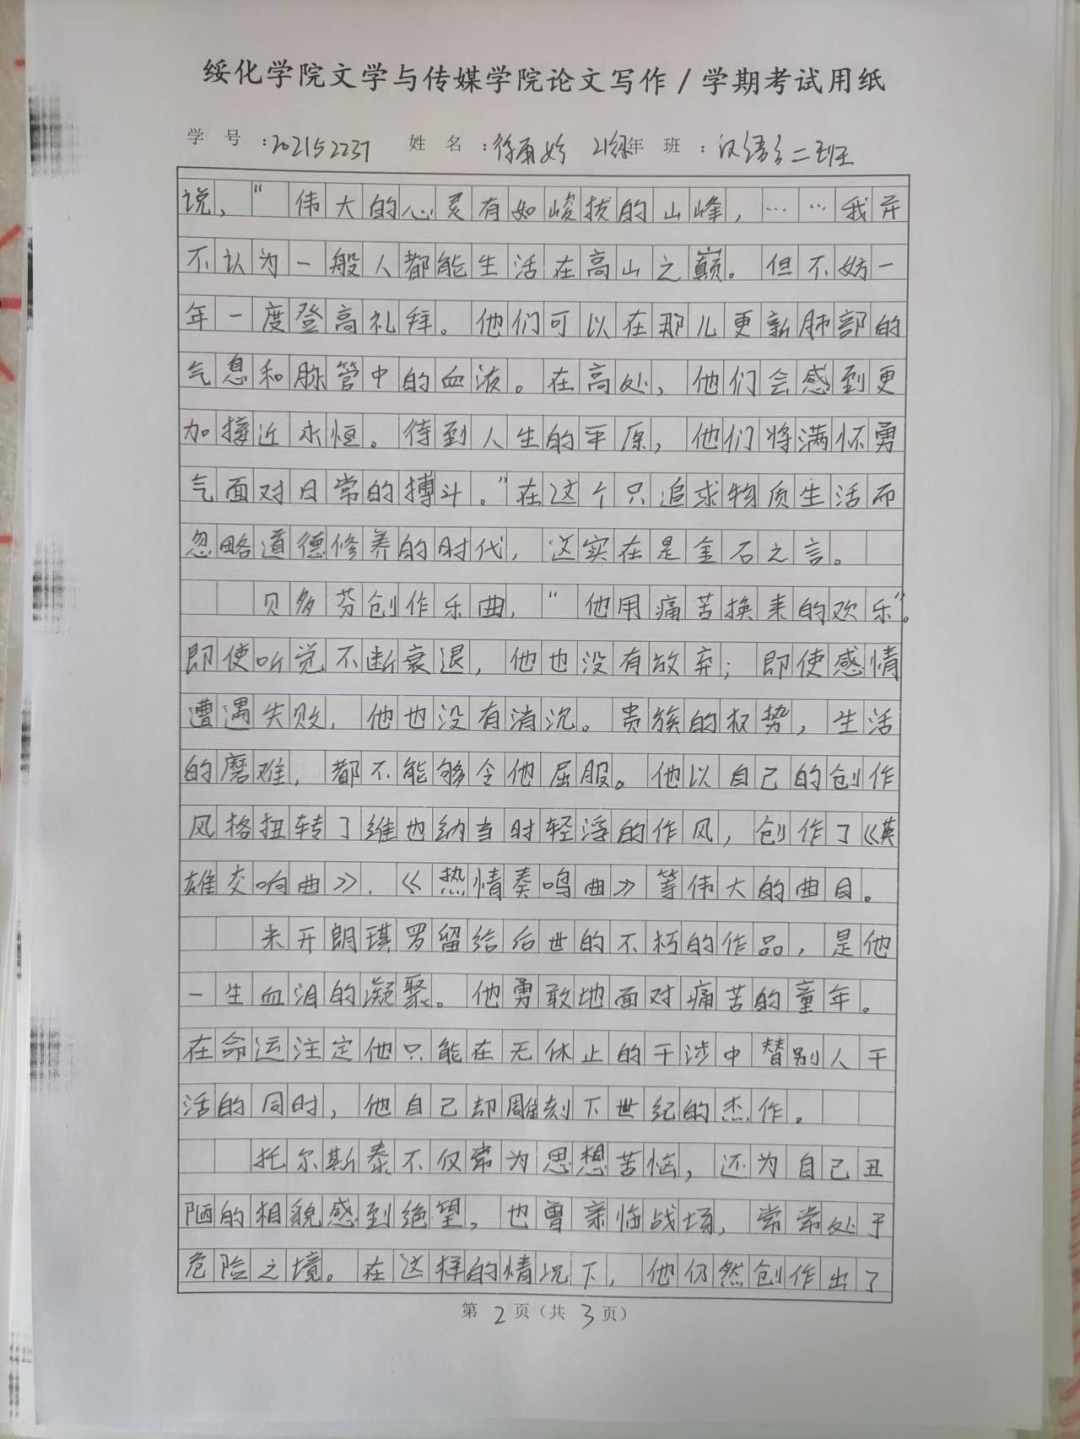 绥化学院文学与传媒学院论文写作/学期考试用纸
学 号 :202152237 姓 名 :徐雨姈 21级年 班 :汉语言二班
说，“伟大的心灵有如峻拔的山峰，……我并
不认为一般人都能生活在高山之巅。但不妨一
年一度登高礼拜。他们可以在那儿更新肺部的
气息和脉管中的血液。在高处，他们会感到更
加接近永恒。待到人生的平原，他们将满怀勇
气面对日常的搏斗。”在这个只追求物质生活而
忽略道德修养的时代，这实在是金石之言。
贝多芬创作乐曲，“他用痛苦换来的欢乐”。
即使听觉不断衰退，他也没有放弃；即使感情
遭遇失败，他也没有消沉。贵族的权势，生活
的磨难，都不能够令他屈服。他以自己的创作
风格扭转了维也纳当时轻浮的作风，创作了《英
雄交响曲》、《热情奏鸣曲》等伟大的曲目。
米开朗琪罗留给后世的不朽的作品，是他
一生血泪的凝聚。他勇敢地面对痛苦的童年。
在命运注定他只能在无休止的干涉中替别人干
活的同时，他自己却雕刻下世纪的杰作。
托尔斯泰不仅常为思想苦恼，还为自己丑
陋的相貌感到绝望，也曾亲临战场，常常处于
危险之境。在这样的情况下，他仍然创作出了
第 2 页（共 3 页）